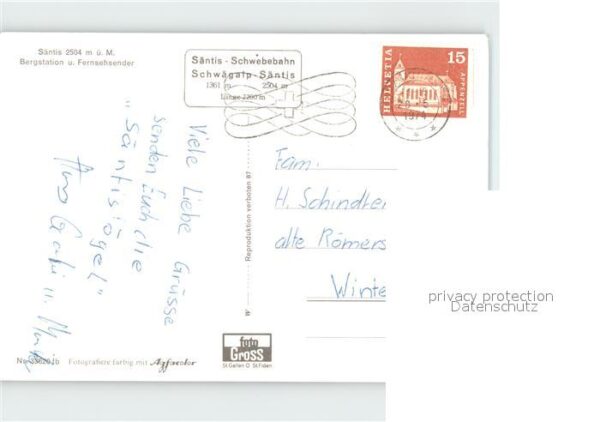 Säntis 2504 m ü. M.
Bergstation u. Fernsehsender
Säntis - Schwebebahn
Schwägalp - Säntis
1361 m 2504 m
Länge 2200 m
HELVETIA
15
APPENZELL
1974
Viele Liebe Grüsse
senden Euch die
"Säntisigel"
Fam.
H. Schindler
alte Römers
Winte
W
Reproduktion verboten 87
foto
GROSS
St.Gallen O St.Fiden
Fotografiere farbig mit Agfacolor
privacy protection
Datenschutz